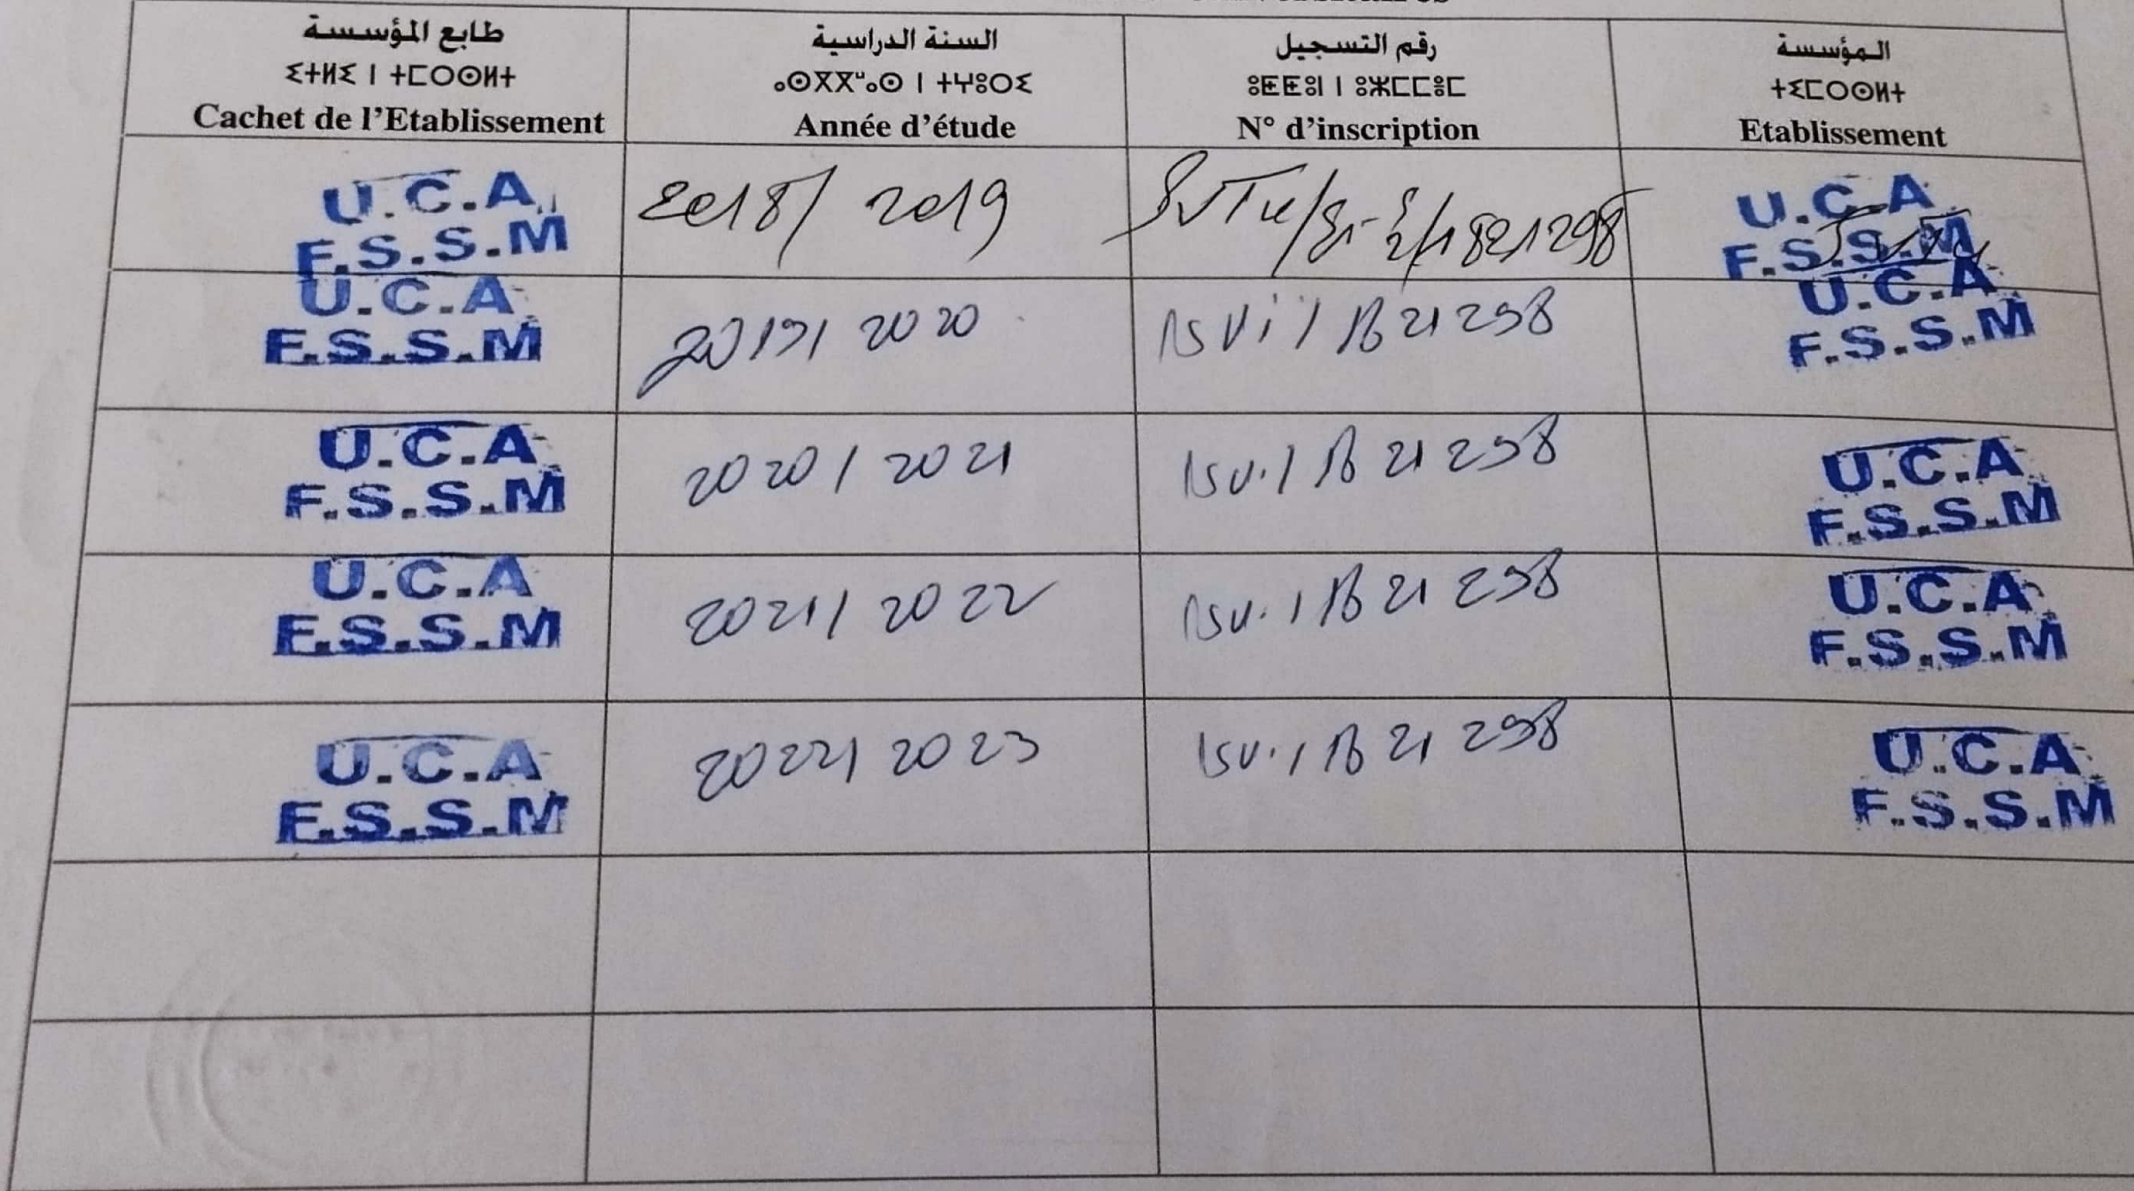 طابع المؤسسة
ⵉⵜⵍⵉ ⵏ ⵜⵎⵔⵙⵍⵜ
Cachet de l'Etablissement
السنة الدراسية
ⴰⵙⴳⴳⵯⴰⵙ ⵏ ⵜⵖⵓⵔⵉ
Année d'étude
رقم التسجيل
ⵓⵟⵟⵓⵏ ⵏ ⵓⵣⵎⵎⴻⵎ
N° d'inscription
المؤسسة
ⵜⵉⵎⵔⵙⵍⵜ
Etablissement
U.C.A
F.S.S.M
2018/ 2019
1821298
U.C.A
F.S.S.M
U.C.A
F.S.S.M
2019/ 2020
1821298
U.C.A
F.S.S.M
U.C.A
F.S.S.M
2020/ 2021
1821298
U.C.A
F.S.S.M
U.C.A
F.S.S.M
2021/ 2022
1821298
U.C.A
F.S.S.M
U.C.A
F.S.S.M
2022/ 2023
1821298
U.C.A
F.S.S.M